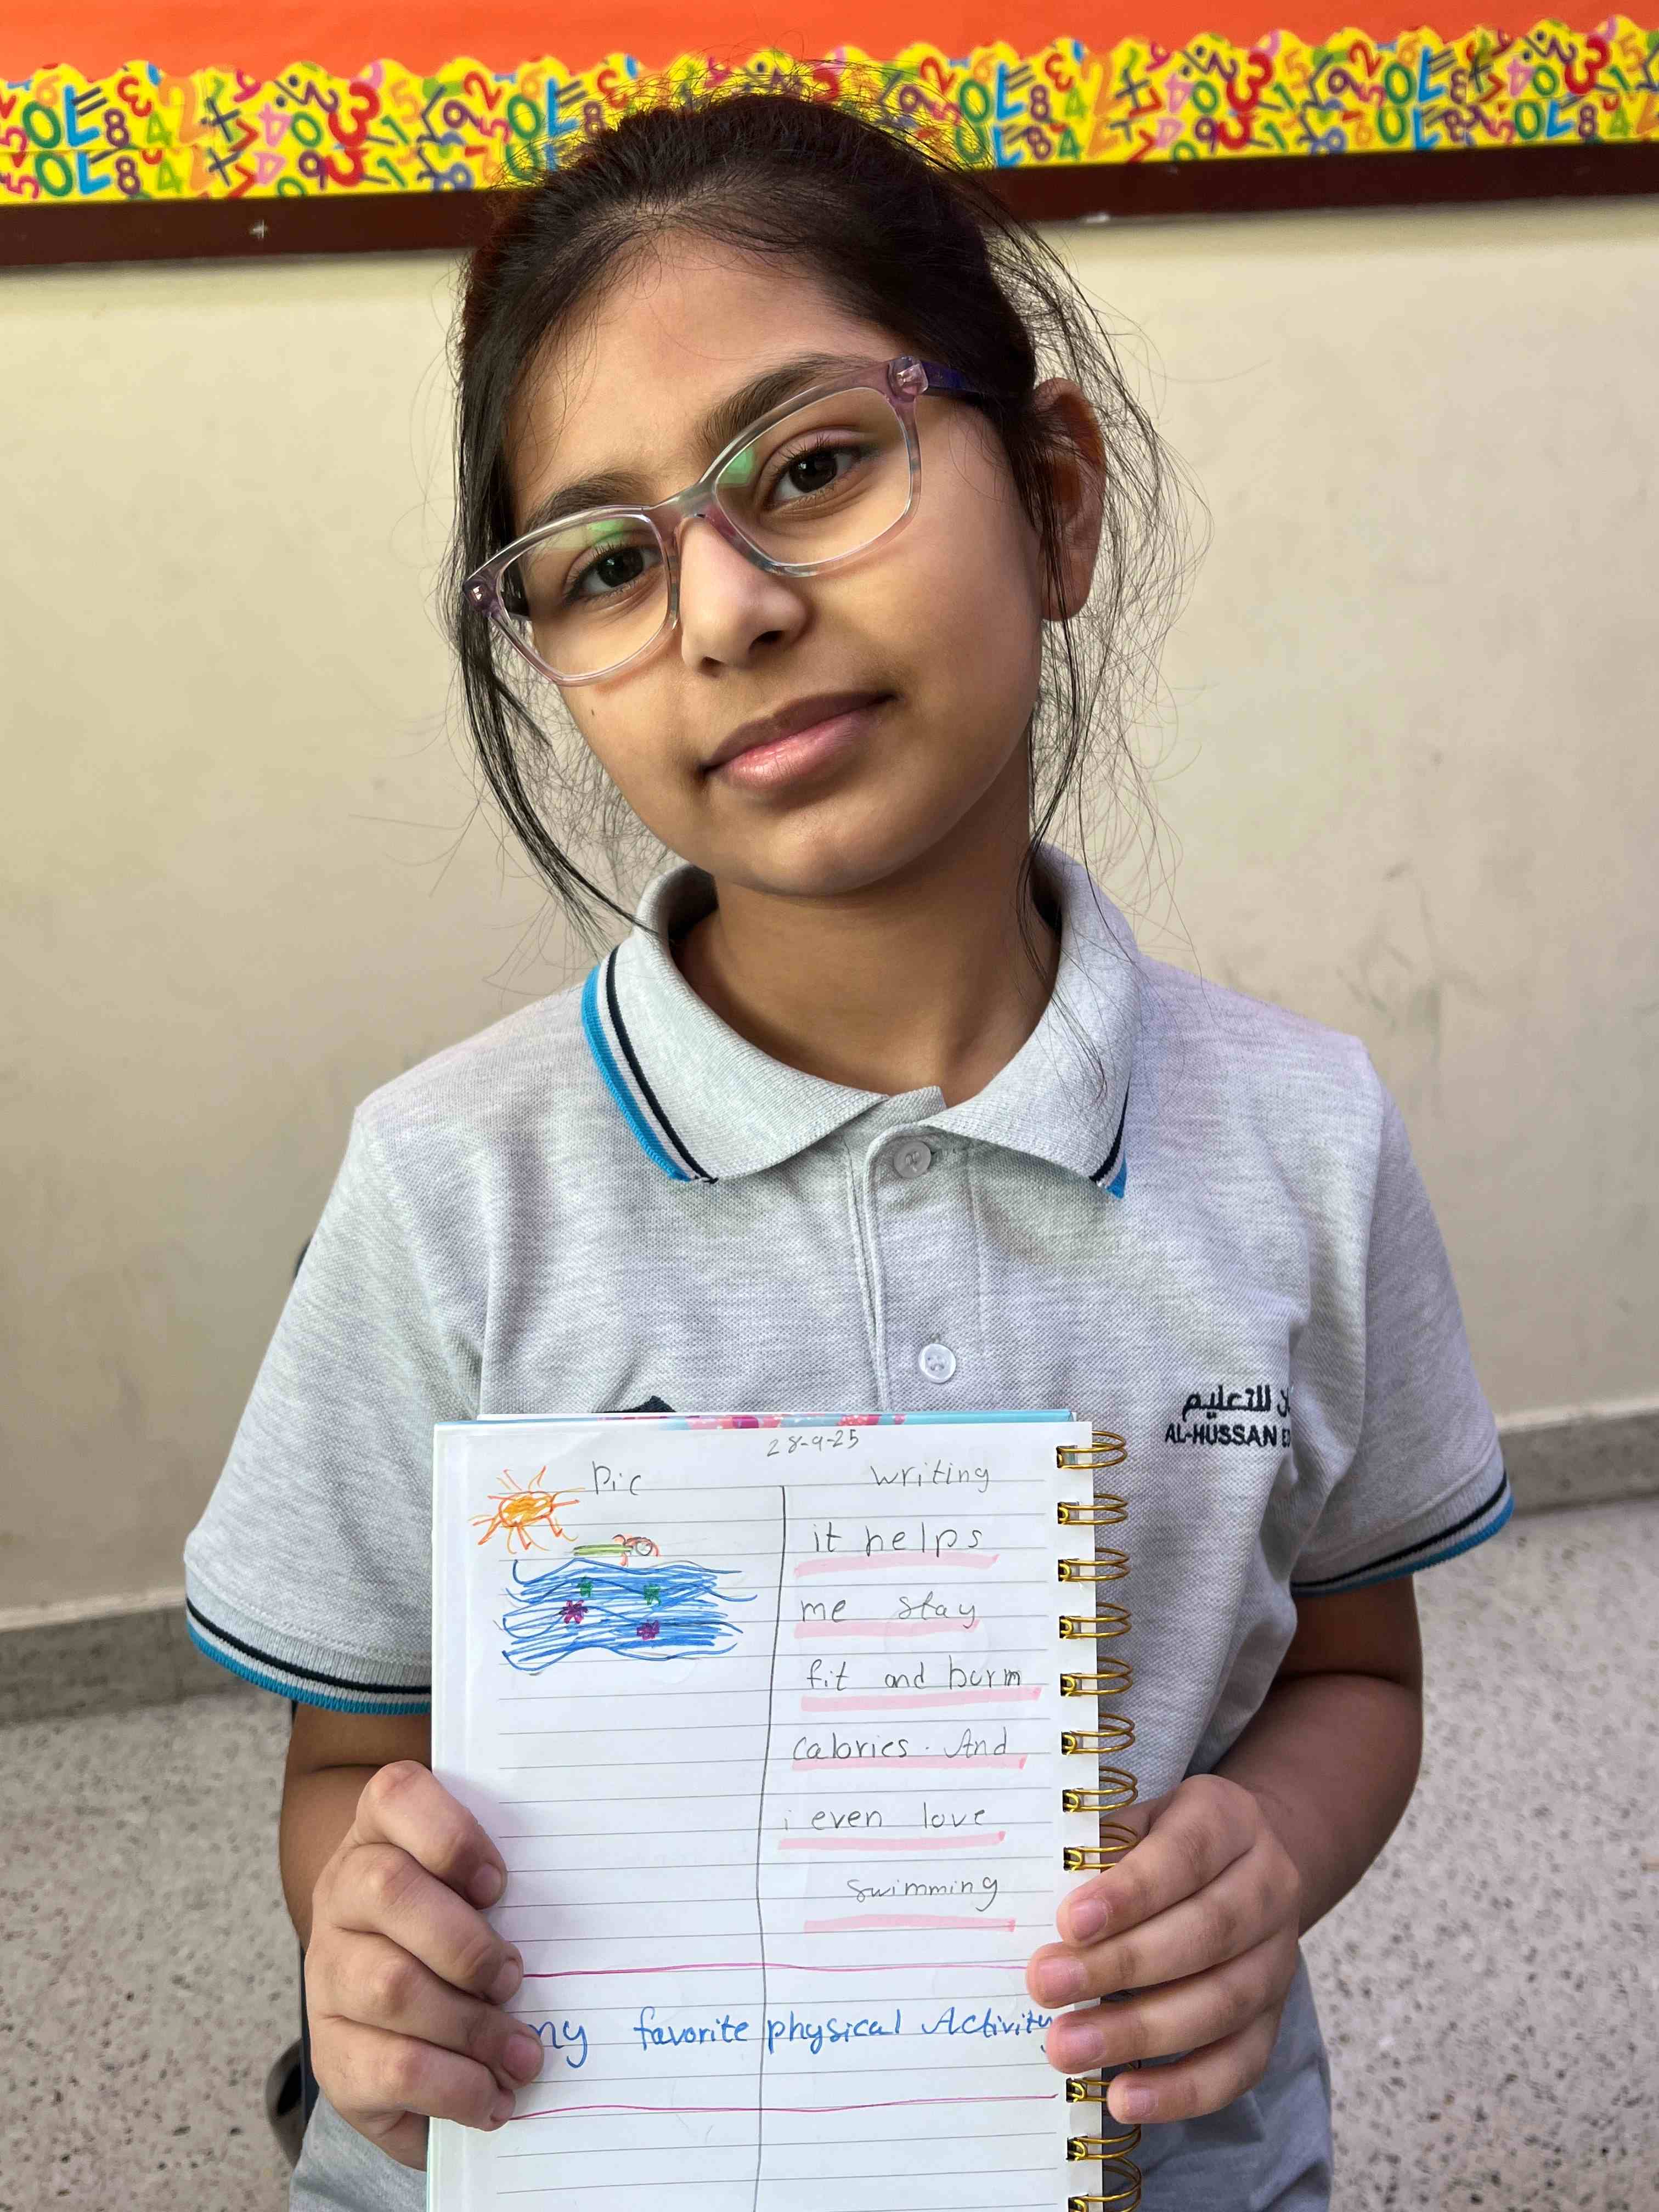 للتعليم
AL-HUSSAN
28-9-25
Pic
writing
it helps
me stay
fit and burn
calories. And
i even love
swimming
my favorite physical Activity